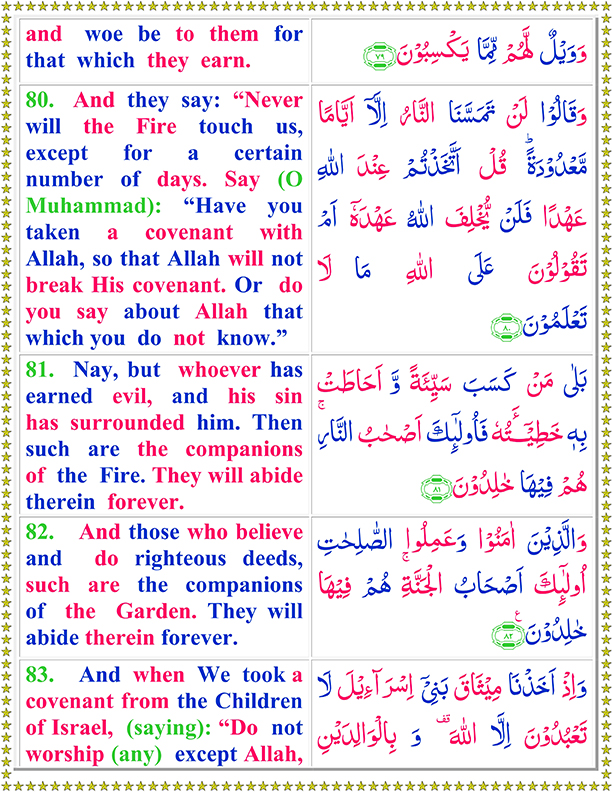 and woe be to them for
that which they earn.
وَوَيْلٌ لَّهُمْ مِّمَّا يَكْسِبُوْنَ ﴿۷۹﴾
80. And they say: “Never
will the Fire touch us,
except for a certain
number of days. Say (O
Muhammad): “Have you
taken a covenant with
Allah, so that Allah will not
break His covenant. Or do
you say about Allah that
which you do not know.”
وَقَالُوْا لَنْ تَمَسَّنَا النَّارُ اِلَّآ اَيَّامًا
مَّعْدُوْدَةً ؕ قُلْ اَتَّخَذْتُمْ عِنْدَ اللّٰهِ
عَهْدًا فَلَنْ يُّخْلِفَ اللّٰهُ عَهْدَهٗٓ اَمْ
تَقُوْلُوْنَ عَلَى اللّٰهِ مَا لَا
تَعْلَمُوْنَ ﴿۸۰﴾
81. Nay, but whoever has
earned evil, and his sin
has surrounded him. Then
such are the companions
of the Fire. They will abide
therein forever.
بَلٰى مَنْ كَسَبَ سَيِّئَةً وَّ اَحَاطَتْ
بِهٖ خَطِيْٓــَٔتُهٗ فَاُولٰٓٮِٕكَ اَصْحٰبُ النَّارِ ۚ
هُمْ فِيْهَا خٰلِدُوْنَ ﴿۸۱﴾
82. And those who believe
and do righteous deeds,
such are the companions
of the Garden. They will
abide therein forever.
وَالَّذِيْنَ اٰمَنُوْا وَعَمِلُوا الصّٰلِحٰتِ
اُولٰٓٮِٕكَ اَصْحَابُ الْجَنَّةِ ۚ هُمْ فِيْهَا
خٰلِدُوْنَ ﴿۸۲﴾ ع
83. And when We took a
covenant from the Children
of Israel, (saying): “Do not
worship (any) except Allah,
وَاِذْ اَخَذْنَا مِيْثَاقَ بَنِىْٓ اِسْرَآءِيْلَ لَا
تَعْبُدُوْنَ اِلَّا اللّٰهَ قف وَ بِالْوَالِدَيْنِ